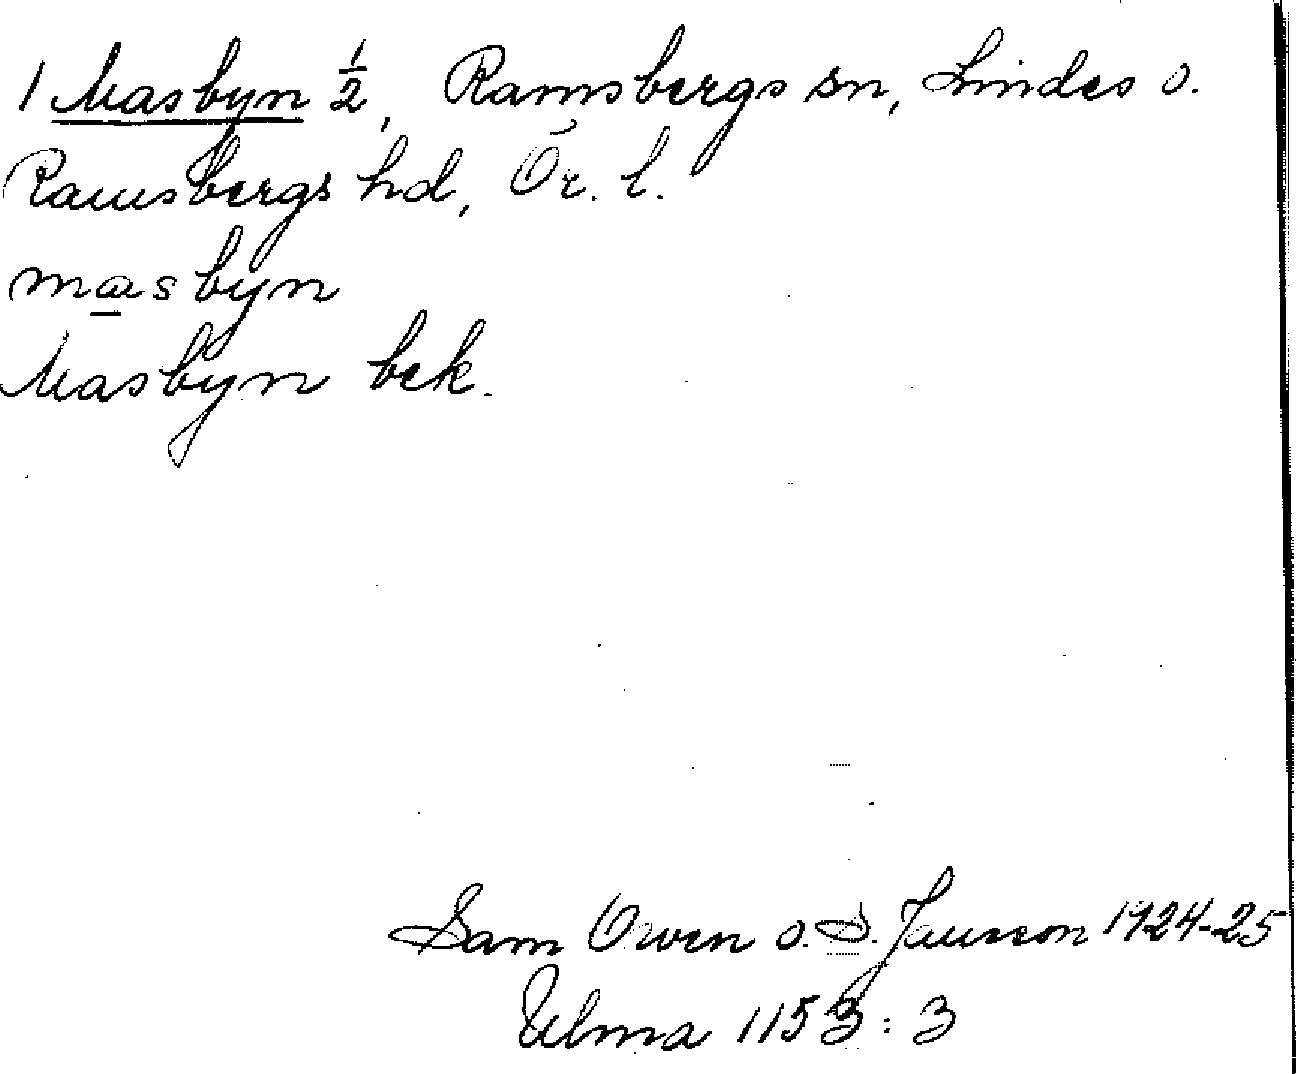 1 Masbyn ½, Ramsbergs sn, Lindes o.
Ramsbergs hd, Ör. l.
masbyn
Masbyn bek.
Sam Owen o. S. Jansson 1924-25
Ulma 1153 : 3